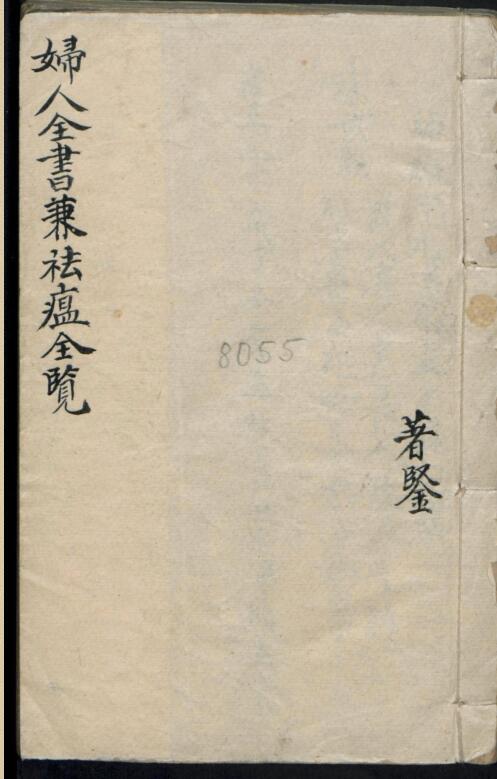 著鋻
8055
婦人全書兼祛瘟全覽